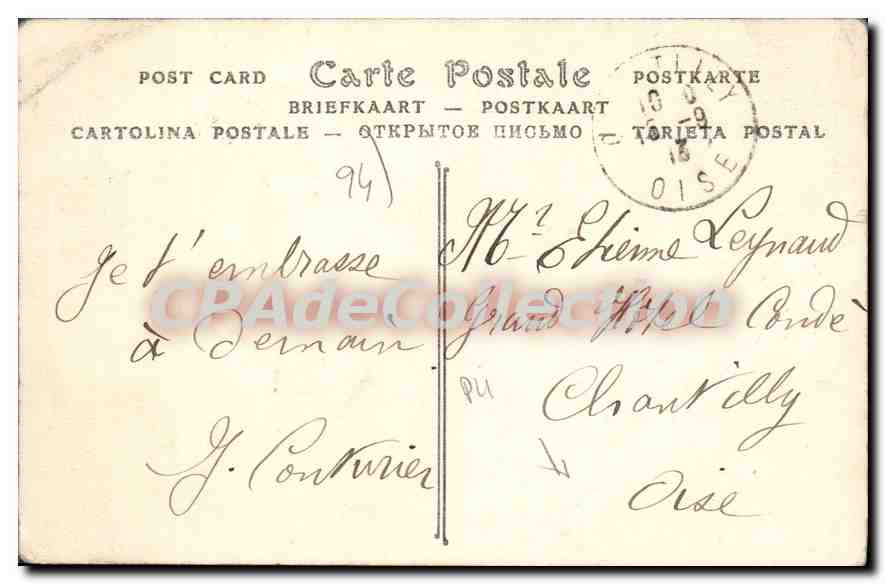 POST CARD Carte Postale POSTKARTE
BRIEFKAART — POSTKAART
CARTOLINA POSTALE — ОТКРЫТОЕ ПИСЬМО — TARJETA POSTAL
TILLY
10
15 -9
13
OISE
94
Je t'embrasse
à Demain
J. Couturier
Mr Etienne Leynaud
Grand Hôtel Condé
Chantilly
Oise
CPAdeCollection